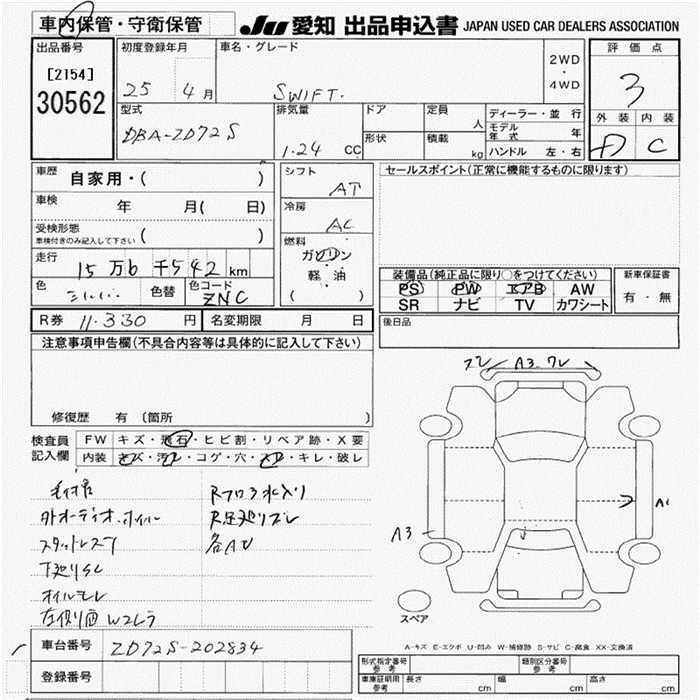 車内保管・守衛保管
JU 愛知 出品申込書 JAPAN USED CAR DEALERS ASSOCIATION
出品番号
[2154]
30562
初度登録年月
25 4 月
車名・グレード
SWIFT.
2WD
・
4WD
評価点
3
外装 内装
D C
型式
DBA-ZD72S
排気量
1.24 CC
ドア
形状
定員
人
積載
kg
ディーラー・並行
モデル年式 年
ハンドル 左・右
車歴 自家用・( )
車検 年 月( 日)
受検形態
車検付きのみ記入して下さい ( )
走行
15 万6 千542 km
色
色替
色コード
ZNC
シフト
AT
冷房
AC
燃料
ガソリン
軽油
( )
セールスポイント(正常に機能するものに限ります)
装備品(純正品に限り○をつけてください)
PS PW エアB AW
SR ナビ TV カワシート
新車保証書
有・無
R券 11.330 円
名変期限 月 日
後日品
注意事項申告欄(不具合内容等は具体的に記入して下さい)
修復歴 有 (箇所 )
検査員
記入欄
FW キズ・飛石・ヒビ割・リペア跡・X要
内装 キズ・汚レ・コゲ・穴・スレ・キレ・破レ
外オーディオ.ホイル
スタッドレス
下廻りSC
オイルモレ
左側面W2レラ
Rフロア水入り
R足廻りズレ
各AU
A3.ワレ
A3
スペア
A-キズ E-エクボ U-凹み W-補修跡 S-サビ C-腐食 XX-交換済
車台番号 ZD72S-202834
登録番号
形式指定番号
参考
類別区分番号
参考
車庫証明用
参考
長さ cm
幅 cm
高さ cm